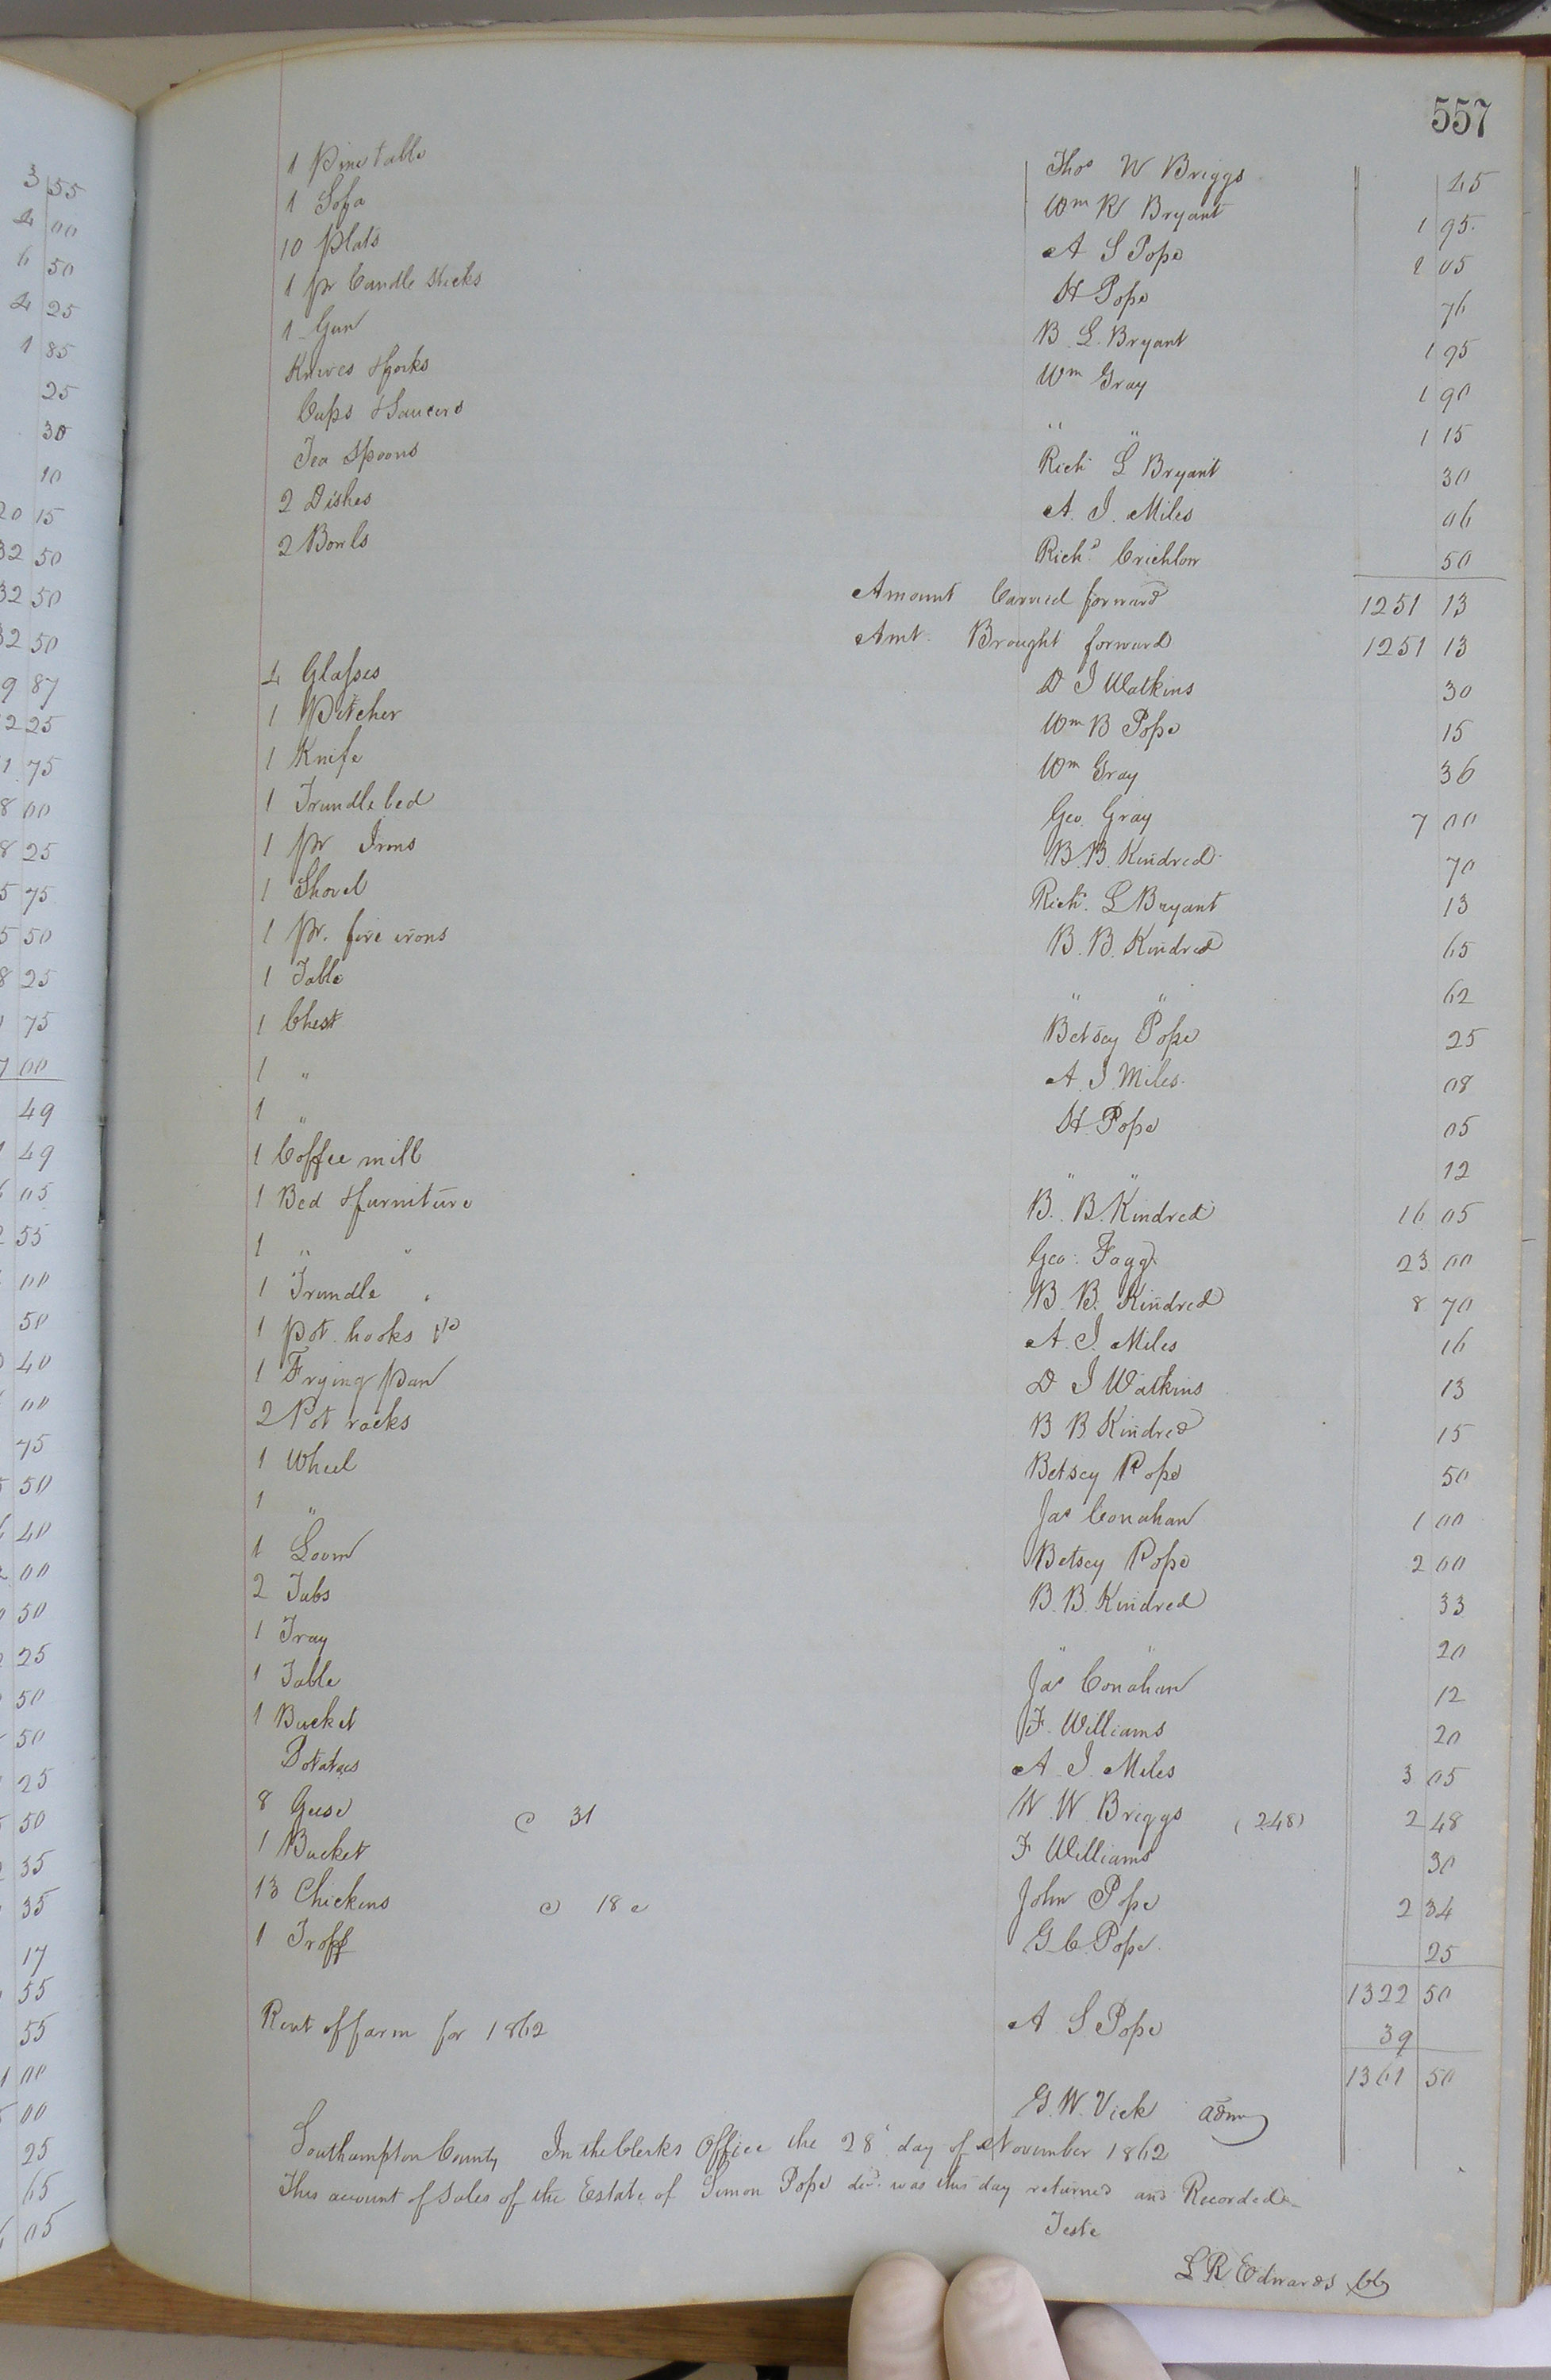 557
1 Pine table Thos W Briggs 45
1 Sofa Wm R Bryant 1 95
10 Plats A S Pope 1 05
1 pr Candle sticks H Pope 76
1 Gun B. L. Bryant 1 95
Knives & forks Wm Gray 1 90
Cups & Saucers " " 1 15
Tea Spoons Rich L Bryant 30
2 Dishes A. J. Miles 06
2 Bowls Richd Crichlow 50
Amount Carried forward 1251 13
Amt. Brought forward 1251 13
4 Glasses D J Watkins 30
1 Pitcher Wm B Pope 15
1 Knife Wm Gray 36
1 Trundle bed Geo. Gray 7 00
1 pr Irons B. B. Kindred 70
1 Shovel Richd. L Bryant 13
1 pr. fire irons B. B. Kindred 65
1 Table " " 62
1 Chest Betsey Pope 25
1 " A. J. Miles 08
1 " H. Pope 05
1 Coffee mill " " 12
1 Bed & furniture B. B. Kindred 16 05
1 " " Geo. Fagg 23 00
1 Trundle " B. B. Kindred 8 70
1 pot hooks A. J. Miles 16
1 Frying pan D J Watkins 13
2 Pot racks B B Kindred 15
1 Wheel Betsey Pope 50
1 " Jas Conahan 1 00
1 Loom Betsey Pope 2 00
2 Tubs B. B. Kindred 33
1 Tray " " 20
1 Table Jas Conahan 12
1 Bucket F. Williams 20
Potatoes A. J. Miles 3 05
8 Geese @ 31 W. W. Briggs (248) 2 48
1 Bucket F Williams 30
13 Chickens @ 18 c John Pope 2 34
1 Troff G. C. Pope 25
1322 50
Rent of farm for 1862 A S Pope 39
1361 50
G. W. Vick admr
Southampton County In the Clerks Office the 28 day of November 1862
This account of Sales of the Estate of Simon Pope decd. was this day returned and Recorded
Teste
L R Edwards CC
3 55
4 00
6 50
4 25
1 85
25
30
10
20 15
32 50
32 50
32 50
9 87
2 25
1 75
8 00
8 25
5 75
5 50
8 25
75
7 00
49
49
05
55
00
50
40
00
75
50
40
00
50
25
50
50
25
50
35
35
17
55
55
00
00
25
65
05